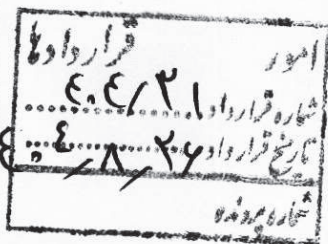 امور قراردادها
شماره قرارداد ٤٠٤/٣١
تاریخ قرارداد ٤٠٤/٨/٢٦
شماره پرونده